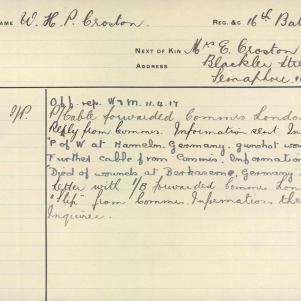 NAME W. H. P. Croston REG. &C 16th Bat
NEXT OF KIN Mrs E. Croston
ADDRESS Blackler Stre
Semaphore,
Off. rep. W & M 11.4.17
Cable forwarded Commrs London
Reply from Commrs. Information sent
P of W at Hameln, Germany, gunshot wou
Further cable from Commrs. Information
"Died of wounds at Germany
Letter with forwarded Commrs Lon
"Slip" from Commrs. Information the
Inquirer.